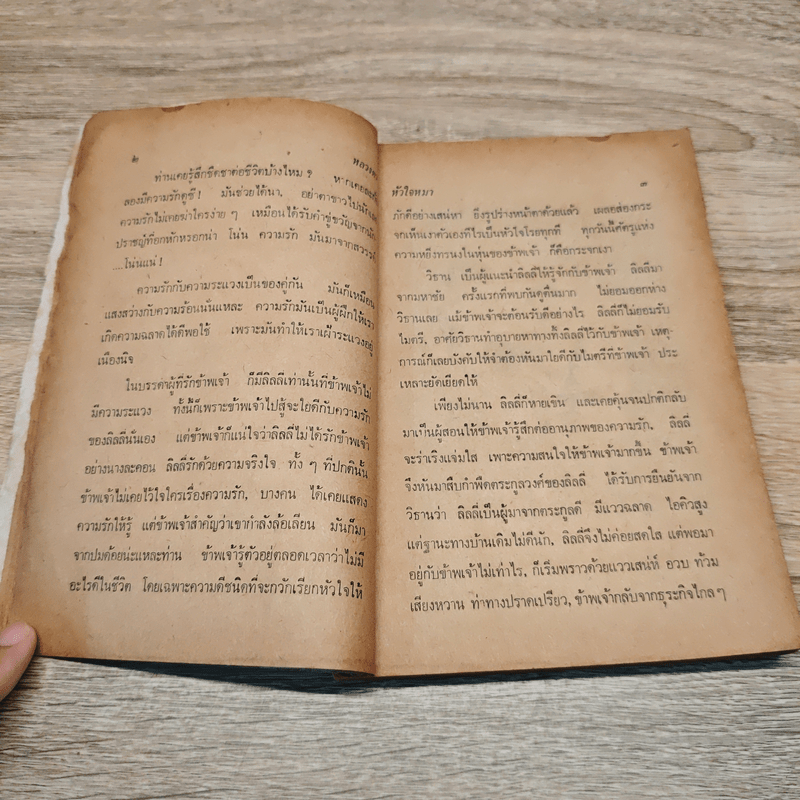 ๒
หลวง
ท่านเคยรู้สึกชืดชาต่อชีวิตบ้างไหม ?
ลองมีความรักดูซี ! มันช่วยได้นา, อย่าดาชาวไป
ความรักไม่เคยฆ่าใครง่าย ๆ เหมือนได้รับคำขู่ขวัญจาก
ปราชญ์ที่อกหักหรอกน่า โน่น ความรัก มันมาจากสวรรค์
....โน่นแน่ !
ความรักกับความระแวงเป็นของคู่กัน มันก็เหมือน
แสงสว่างกับความร้อนนั่นแหละ ความรักมันเป็นผู้ฝึกให้เรา
เกิดความฉลาดได้ดีพอใช้ เพราะมันทำให้เราเฝ้าระแวงอยู่
เนืองนิจ
ในบรรดาผู้ที่รักข้าพเจ้า ก็มีลิลลี่เท่านั้นที่ข้าพเจ้าไม่
มีความระแวง ทั้งนี้ก็เพราะข้าพเจ้าไปสู้จะใยดีกับความรัก
ของลิลลี่นั่นเอง แต่ข้าพเจ้าก็แน่ใจว่าลิลลี่ไม่ได้รักข้าพเจ้า
อย่างนางละคอน ลิลลี่รักด้วยความจริงใจ ทั้ง ๆ ที่ปกตินั้น
ข้าพเจ้าไม่เคยไว้ใจใครเรื่องความรัก, บางคน ได้เคยแสดง
ความรักให้รู้ แต่ข้าพเจ้าสำคัญว่าเขากำลังล้อเลียน มันก็มา
จากปมด้อยน่ะแหละท่าน ข้าพเจ้ารู้ตัวอยู่ตลอดเวลาว่าไม่มี
อะไรดีในชีวิต โดยเฉพาะความดีชนิดที่จะกวักเรียกหัวใจให้
หัวใจหมา
๓
ภักดีอย่างเสน่หา ยิ่งรูปร่างหน้าตาด้วยแล้ว เผลอส่องกระ
จกเห็นเงาตัวเองทีไรเป็นหัวใจโรยทุกที ทุกวันนี้ศัตรูแห่ง
ความหยิ่งทรนงในหุ่นของข้าพเจ้า ก็คือกระจกเงา
วิธาน เป็นผู้แนะนำลิลลี่ให้รู้จักกับข้าพเจ้า ลิลลี่มา
จากมหาชัย ครั้งแรกที่พบกันดูตื่นมาก ไม่ยอมออกห่าง
วิธานเลย แม้ข้าพเจ้าจะต้อนรับดีอย่างไร ลิลลี่ก็ไม่ยอมรับ
ไมตรี, อาศัยวิธานทำอุบายหาทางทิ้งลิลลี่ไว้กับข้าพเจ้า เหตุ-
การณ์ก็เลยบังคับให้จำต้องหันมาใยดีกับไมตรีที่ข้าพเจ้า ประ
เหลาะยัดเยียดให้
เพียงไม่นาน ลิลลี่ก็หายเขิน และเคยคุ้นจนปกติกลับ
มาเป็นผู้สอนให้ข้าพเจ้ารู้สึกต่ออานุภาพของความรัก, ลิลลี่
จะร่าเริงแจ่มใส เพาะความสนใจให้ข้าพเจ้ามากขึ้น ข้าพเจ้า
จึงหันมาสืบกำพืดตระกูลวงศ์ของลิลลี่ ได้รับการยืนยันจาก
วิธานว่า ลิลลี่เป็นผู้มาจากตระกูลดี มีแววฉลาด ไอคิวสูง
แต่ฐานะทางบ้านเดิมไม่ดีนัก, ลิลลี่จึงไม่ค่อยสดใส แต่พอมา
อยู่กับข้าพเจ้าไม่เท่าไร, ก็เริ่มพราวด้วยแววเสน่ห์ อวบ ท้วม
เสียงหวาน ท่าทางปราดเปรียว, ข้าพเจ้ากลับจากธุระกิจไกล ๆ